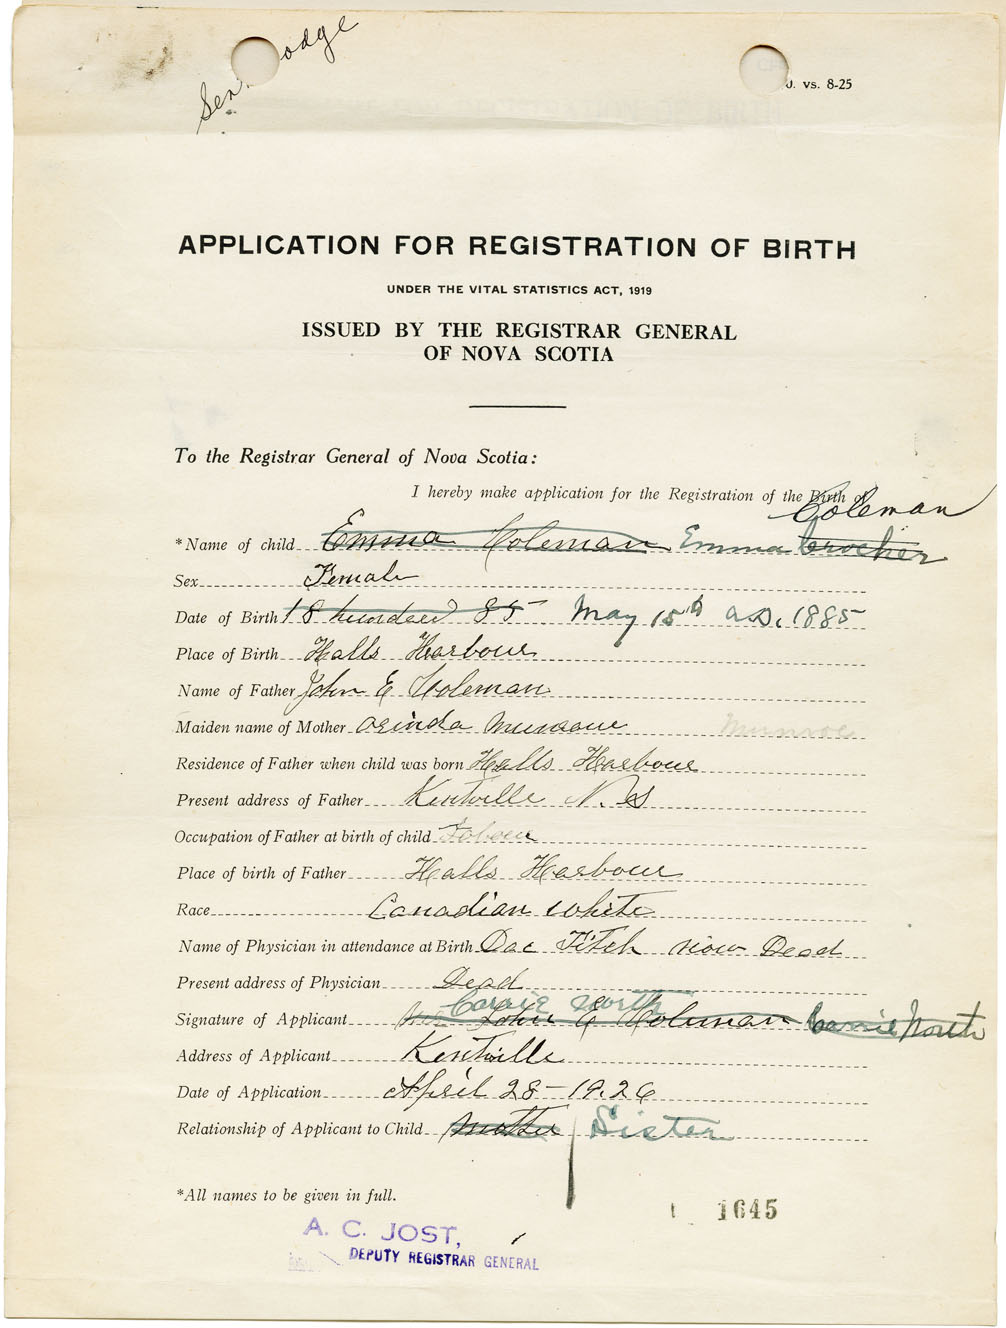 vs. 8-25
APPLICATION FOR REGISTRATION OF BIRTH
UNDER THE VITAL STATISTICS ACT, 1919
ISSUED BY THE REGISTRAR GENERAL
OF NOVA SCOTIA
To the Registrar General of Nova Scotia:
I hereby make application for the Registration of the Birth of
Coleman
*Name of child Emma Coleman Emma Crocker
Sex Female
Date of Birth 18 hundred 85 May 15th A.D. 1885
Place of Birth Halls Harbour
Name of Father John E Coleman
Maiden name of Mother Orinda Munroe
Residence of Father when child was born Halls Harbour
Present address of Father Kentville N.S
Occupation of Father at birth of child Labour
Place of birth of Father Halls Harbour
Race Canadian white
Name of Physician in attendance at Birth Doc Fitch now Dead
Present address of Physician Dead
Carrie North
Signature of Applicant Mrs John E Coleman Carrie North
Address of Applicant Kentville
Date of Application April 28-1926
Relationship of Applicant to Child Mother / Sister
*All names to be given in full.
1645
A. C. JOST,
DEPUTY REGISTRAR GENERAL